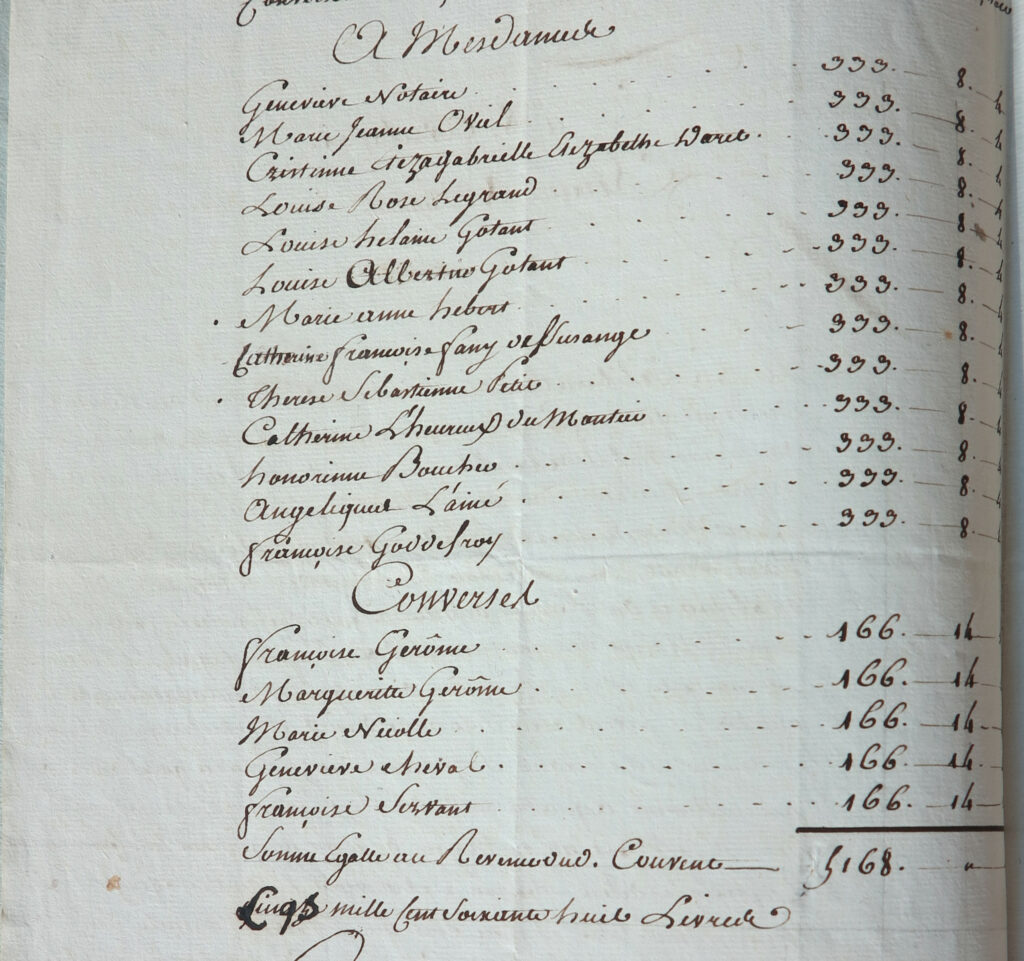 A Mesdames
Genevieve Notaire 333. 8. 4
Marie Jeanne Oviel 333. 8. 4
Cristinne Elezabethe Daret 333. 8. 4
Louise Rose Legrand 333. 8. 4
Louise helaine Gotant 333. 8. 4
Louise Albertine Gotant 333. 8. 4
Marie anne hebert 333. 8. 4
Catherine françoise fany 333. 8. 4
Therese Sebastienne Petit 333. 8. 4
Catherine L'heureux du Mantier 333. 8. 4
honorinne Boucher 333. 8. 4
Angelique L'ainé 333. 8. 4
françoise Goddefroy 333. 8.
Converses
françoise Gerôme 166. 14
Margueritte Gerôme 166. 14
Marie Nicolle 166. 14
Genevieve cheval 166. 14
françoise Servant 166. 14
Somme Egalle au Revenu dud. Couvent 5168. "
Cinq mille Cent Soixante huit Livres